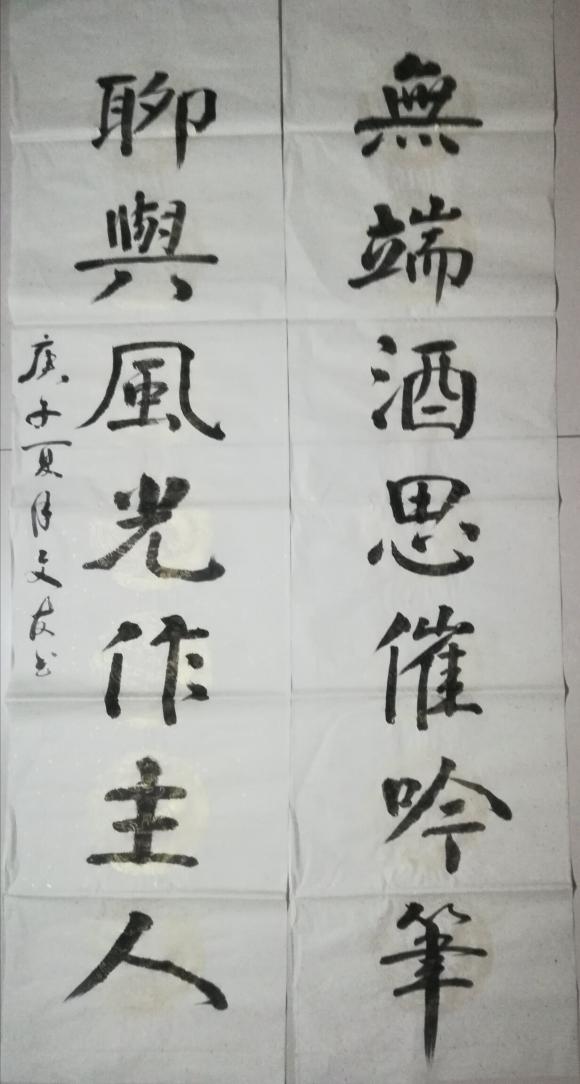 無端酒思催吟筆
聊與風光作主人
庚子夏月文友书